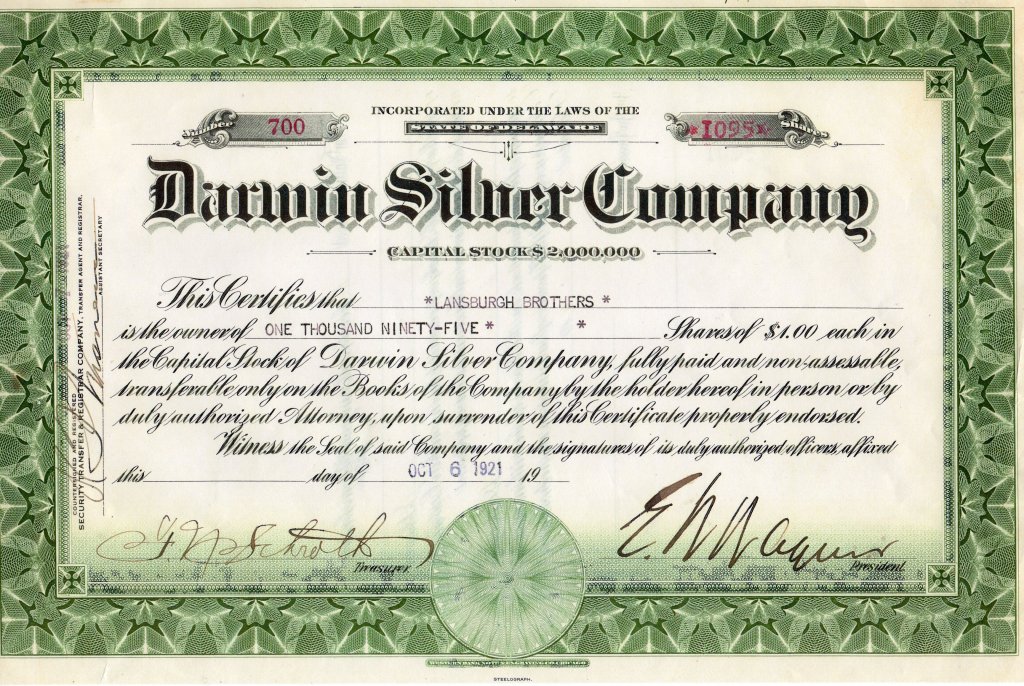 INCORPORATED UNDER THE LAWS OF THE
STATE OF DELAWARE
Number 700
*1095* Shares
Darwin Silver Company
CAPITAL STOCK $2,000,000
This Certifies that *LANSBURGH BROTHERS *
is the owner of ONE THOUSAND NINETY-FIVE * * Shares of $1.00 each in
the Capital Stock of Darwin Silver Company, fully paid and non-assessable,
transferable only on the Books of the Company by the holder hereof in person or by
duly authorized Attorney, upon surrender of this Certificate properly endorsed.
Witness the Seal of said Company and the signatures of its duly authorized officers, affixed
this day of OCT 6 1921 19
COUNTERSIGNED AND REGISTERED
SECURITY TRANSFER & REGISTRAR COMPANY, TRANSFER AGENT AND REGISTRAR.
ASSISTANT SECRETARY
Treasurer
E. W. Wagner
President
WESTERN BANK NOTE & ENGRAVING CO. CHICAGO
STEELOGRAPH.